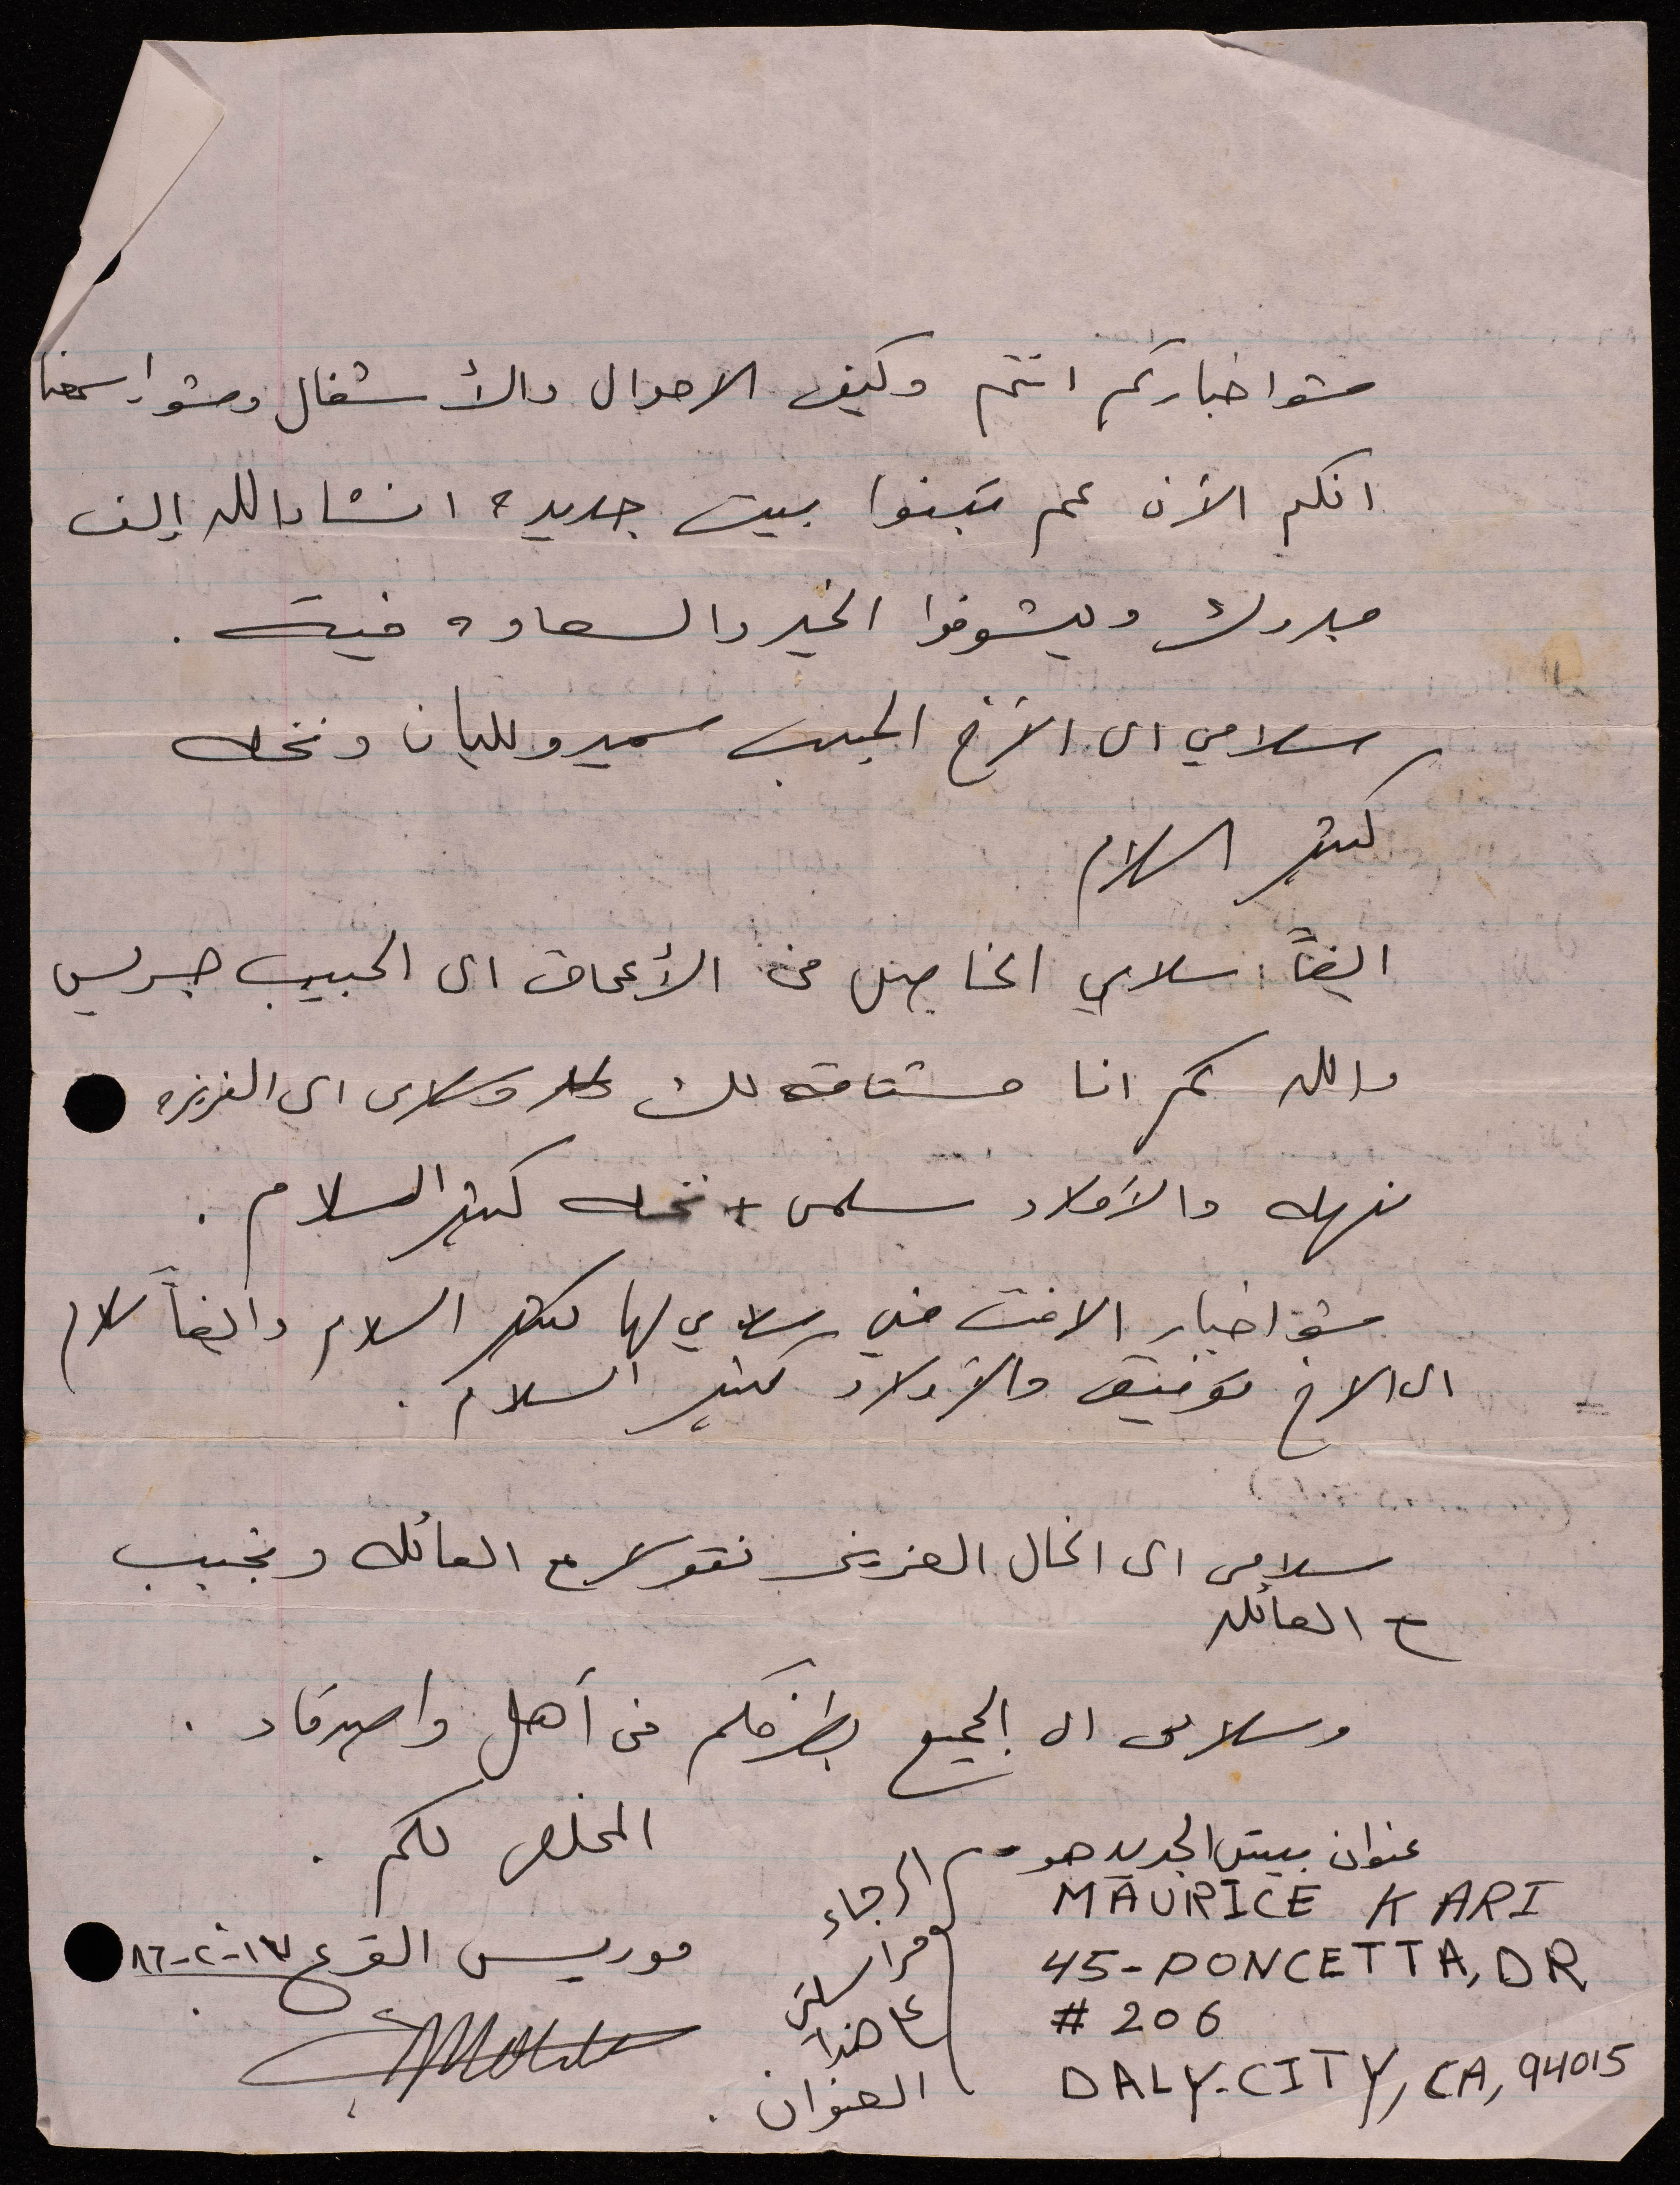 شو اخباركم انتم وكيف الاحوال والأشغال وشو سمعنا
انكم الآن عم تبنوا بيت جديده انشاءالله إلف
مبروك وبيشوفوا الخير والسعاده فيه .
سلامي الى الأخ الحبيب سمير وليليان ونخله
كثير السلام
ايضاً سلامي الخاص من الأعماق الى الحبيب جريس
والله كم انا مشتاقه لك وسلامي الى العزيزه
نهله والأولاد سلمى + نخله كثير السلام .
شو اخبار الاخت مي سلامي لها كثير السلام وايضاً سلام
الى الاخ توفيق والأولاد كثير السلام .
سلامي الى الخال العزيز نقولا مع العائله ونجيب
ع العائله
وسلامي الى الجميع بطرفكم من أهل واصدقاء .
المخلص لكم .
موريس القرع ١٧-٢-٨٦
عنوان بيتي الجديد هو
MAURICE KARI
45-PONCETTA, DR
# 206
DALY-CITY, CA, 94015
الرجاء
مراسلتي
على هذا
العنوان .